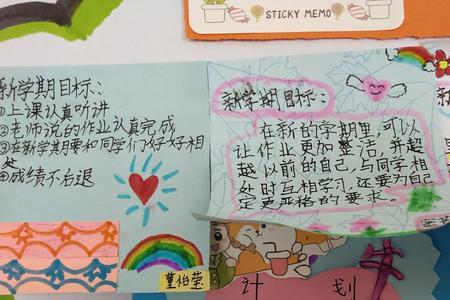 STICKY MEMO
新学期目标:
①上课认真听讲
②老师说的作业认真完成
③在新学期要和同学们好好相
处
④成绩不后退
新学期目标:
在新的学期里,可以
让作业更加整洁,并超
越以前的自己,与同学相
处时互相学习,还要为自己
定更严格的要求。
计 划